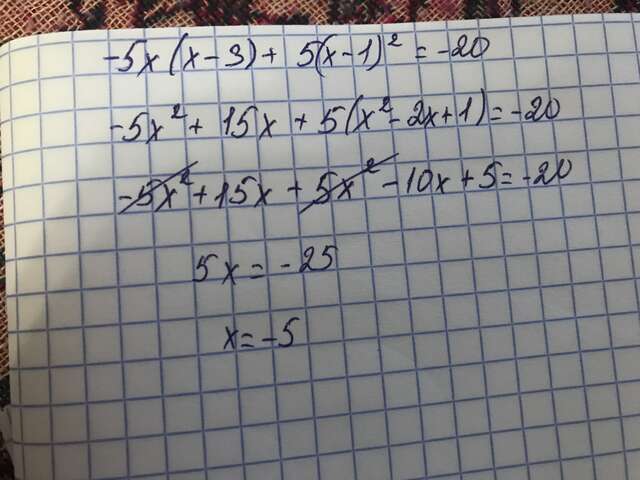 -5x(x-3)+5(x-1)²=-20
-5x²+15x+5(x²-2x+1)=-20
-5x²+15x+5x²-10x+5=-20
5x=-25
x=-5